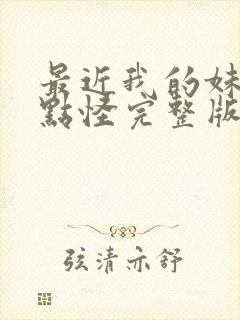 最近我的妹
點怪完整版
弦清亦舒